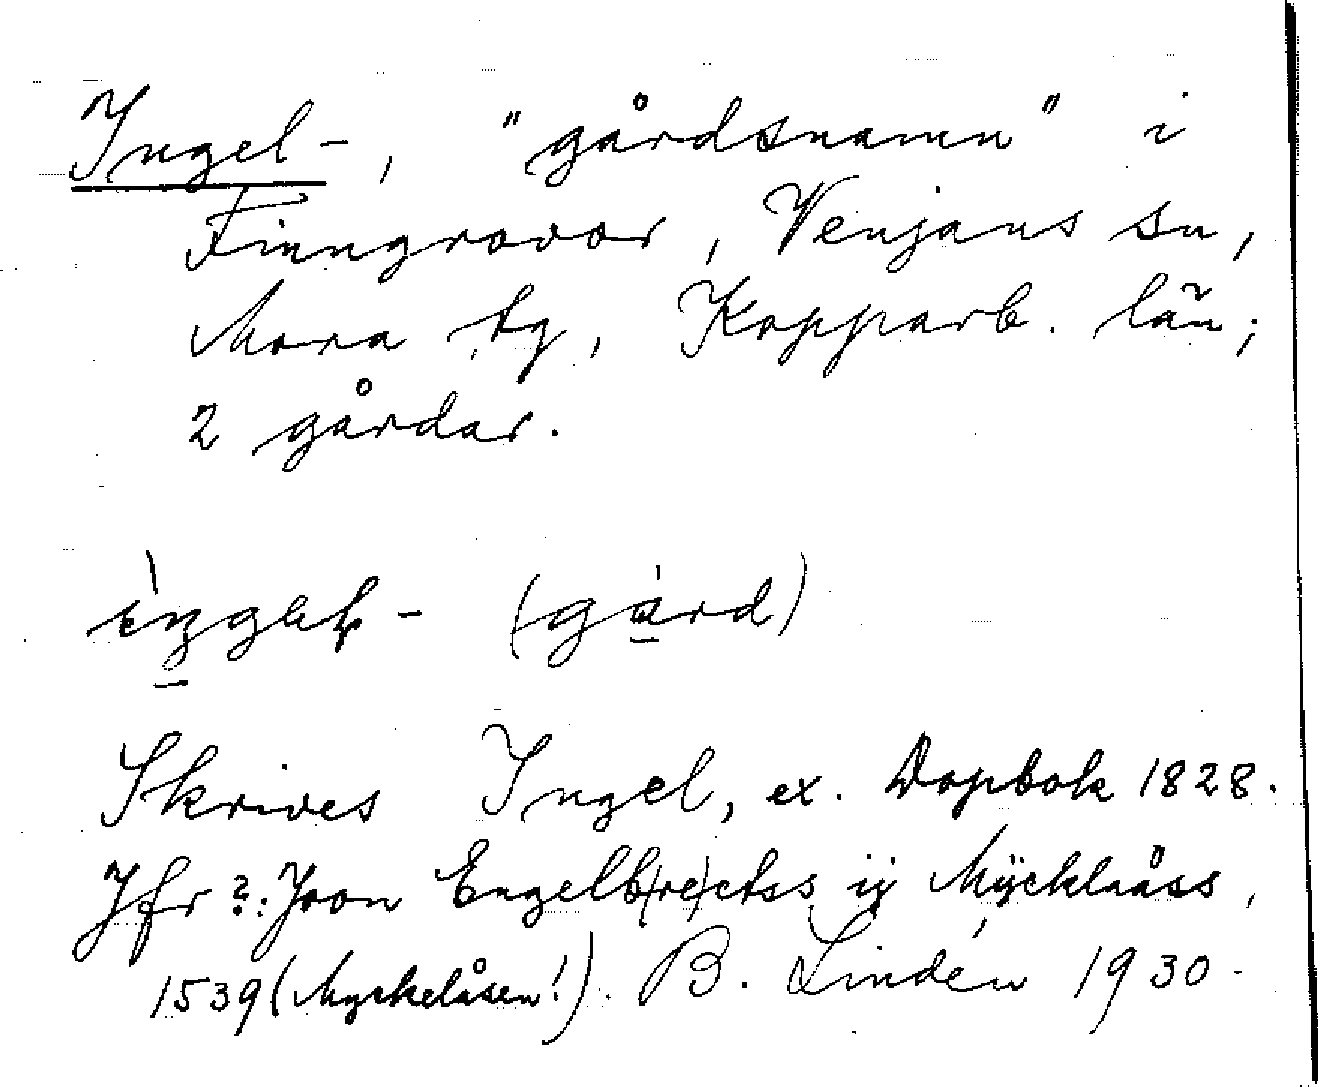 Ingel-, "gårdsnamn" i
Finngrovor, Venjans sn,
Mora tg, Kopparb. län;
2 gårdar.
(gård)
Skrives Ingel, ex. Dopbok 1828.
Jfr?: Joon Engelb(re)ctss ij Mÿcklaåss,
1539 (Myckelåsen!). B. Lindén 1930.